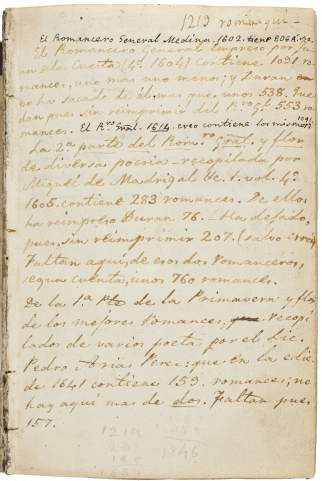 1219 romanqui-
El Romancero General Medina. 1602. tiene 806 R.ces
El Romancero General impreso por Ju
an de la Cuesta (4º 1604) contiene 1091 ro-
mances, uno mas uno menos; y Duran
no ha sacado de él mas que unos 538. Que
dan pues sin reimprimir del R.ro G.l 553 ro
mances. El R.ro gnal. 1614. creo contiene los mismos 1091.
La 2ª parte del Rom.ro gral. y flor
de diversa poesia recopilada por
Miguel de Madrigal &c. 1. vol. 4º
1605. contiene 283 romances. De ellos
ha reimpreso Duran 76.— Ha dejado,
pues, sin reimprimir 207. (salvo error)
Faltan aqui, de esos dos Romanceros,
segun cuenta, unos 760 romances.
De la 1.ª pte de la Primavera y flor
de los mejores romances, recopi
lados de varios poetas por el Lic.
Pedro Arias Perez, que en la edic.
de 1641 contiene 159. romances; no
hay aqui mas de dos. Faltan pues
157.